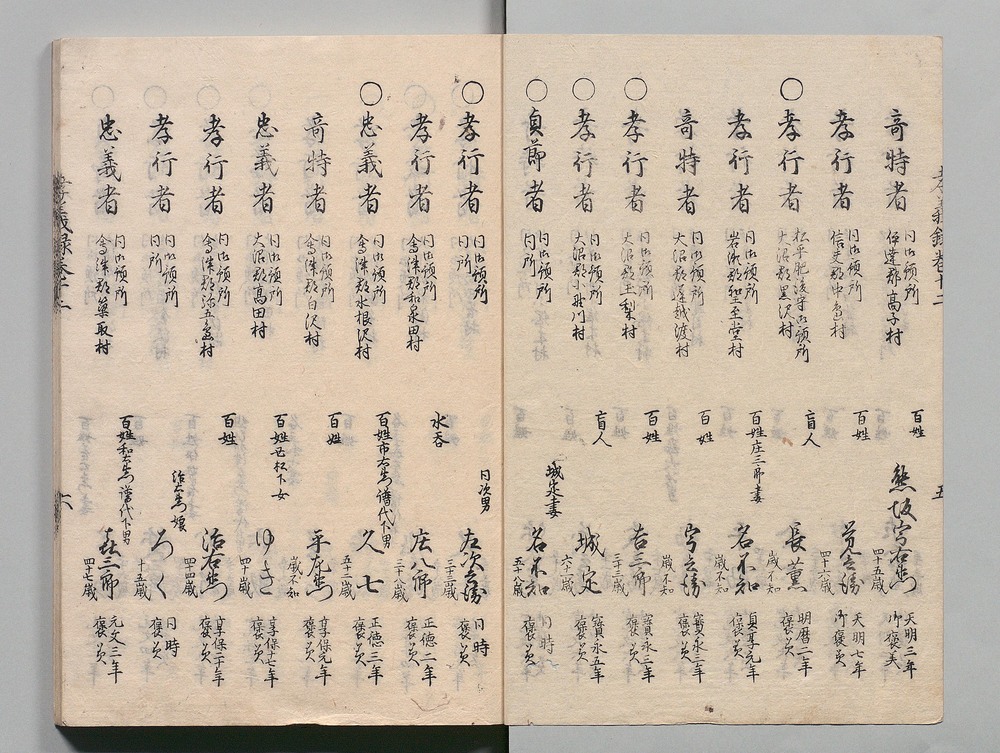 孝義録巻十二
五
奇特者 同御領所 伊達郡高子村 百姓 熊坂宇右衛門 四十五歳 天明三年 御褒美
孝行者 同御領所 信夫郡中島村 百姓 四十六歳 天明七年 御褒美
○孝行者 松平肥後守御預所 大沼郡黒沢村 盲人 長薫 歳不知 明暦二年 褒美
孝行者 同御預所 岩瀬郡 百姓庄三郎妻 名不知 歳不知 貞享元年 褒美
奇特者 同御預所 大沼郡 百姓 歳不知 寶永三年 褒美
○孝行者 同御預所 大沼郡玉梨村 百姓 吉三郎 三十一歳 寶永三年 褒美
○孝行者 同御預所 大沼郡小野川村 盲人 城定 六十歳 寶永五年 褒美
○貞節者 同御預所 同所 城定妻 名不知 五十八歳 同時 褒美
○孝行者 同御預所 同所 同次男 左次兵衛 三十三歳 同時 褒美
孝行者 同御預所 會津郡和泉田村 水呑 庄八郎 三十八歳 正徳二年 褒美
○忠義者 同御預所 會津郡水根沢村 百姓市右衛門譜代下男 久七 五十二歳 正徳三年 褒美
奇特者 同御預所 會津郡白沢村 百姓 平左衛門 歳不知 享保元年 褒美
忠義者 同御預所 大沼郡高田村 ゆき 四十歳 享保十七年 褒美
孝行者 同御預所 會津郡 百姓 治右衛門 四十四歳 享保二十年 褒美
孝行者 同御預所 同所 治右衛門娘 ろく 十五歳 同時 褒美
忠義者 同御預所 會津郡藥取村 百姓和右衛門譜代下男 喜三郎 四十七歳 元文三年 褒美
孝義録巻十二
六